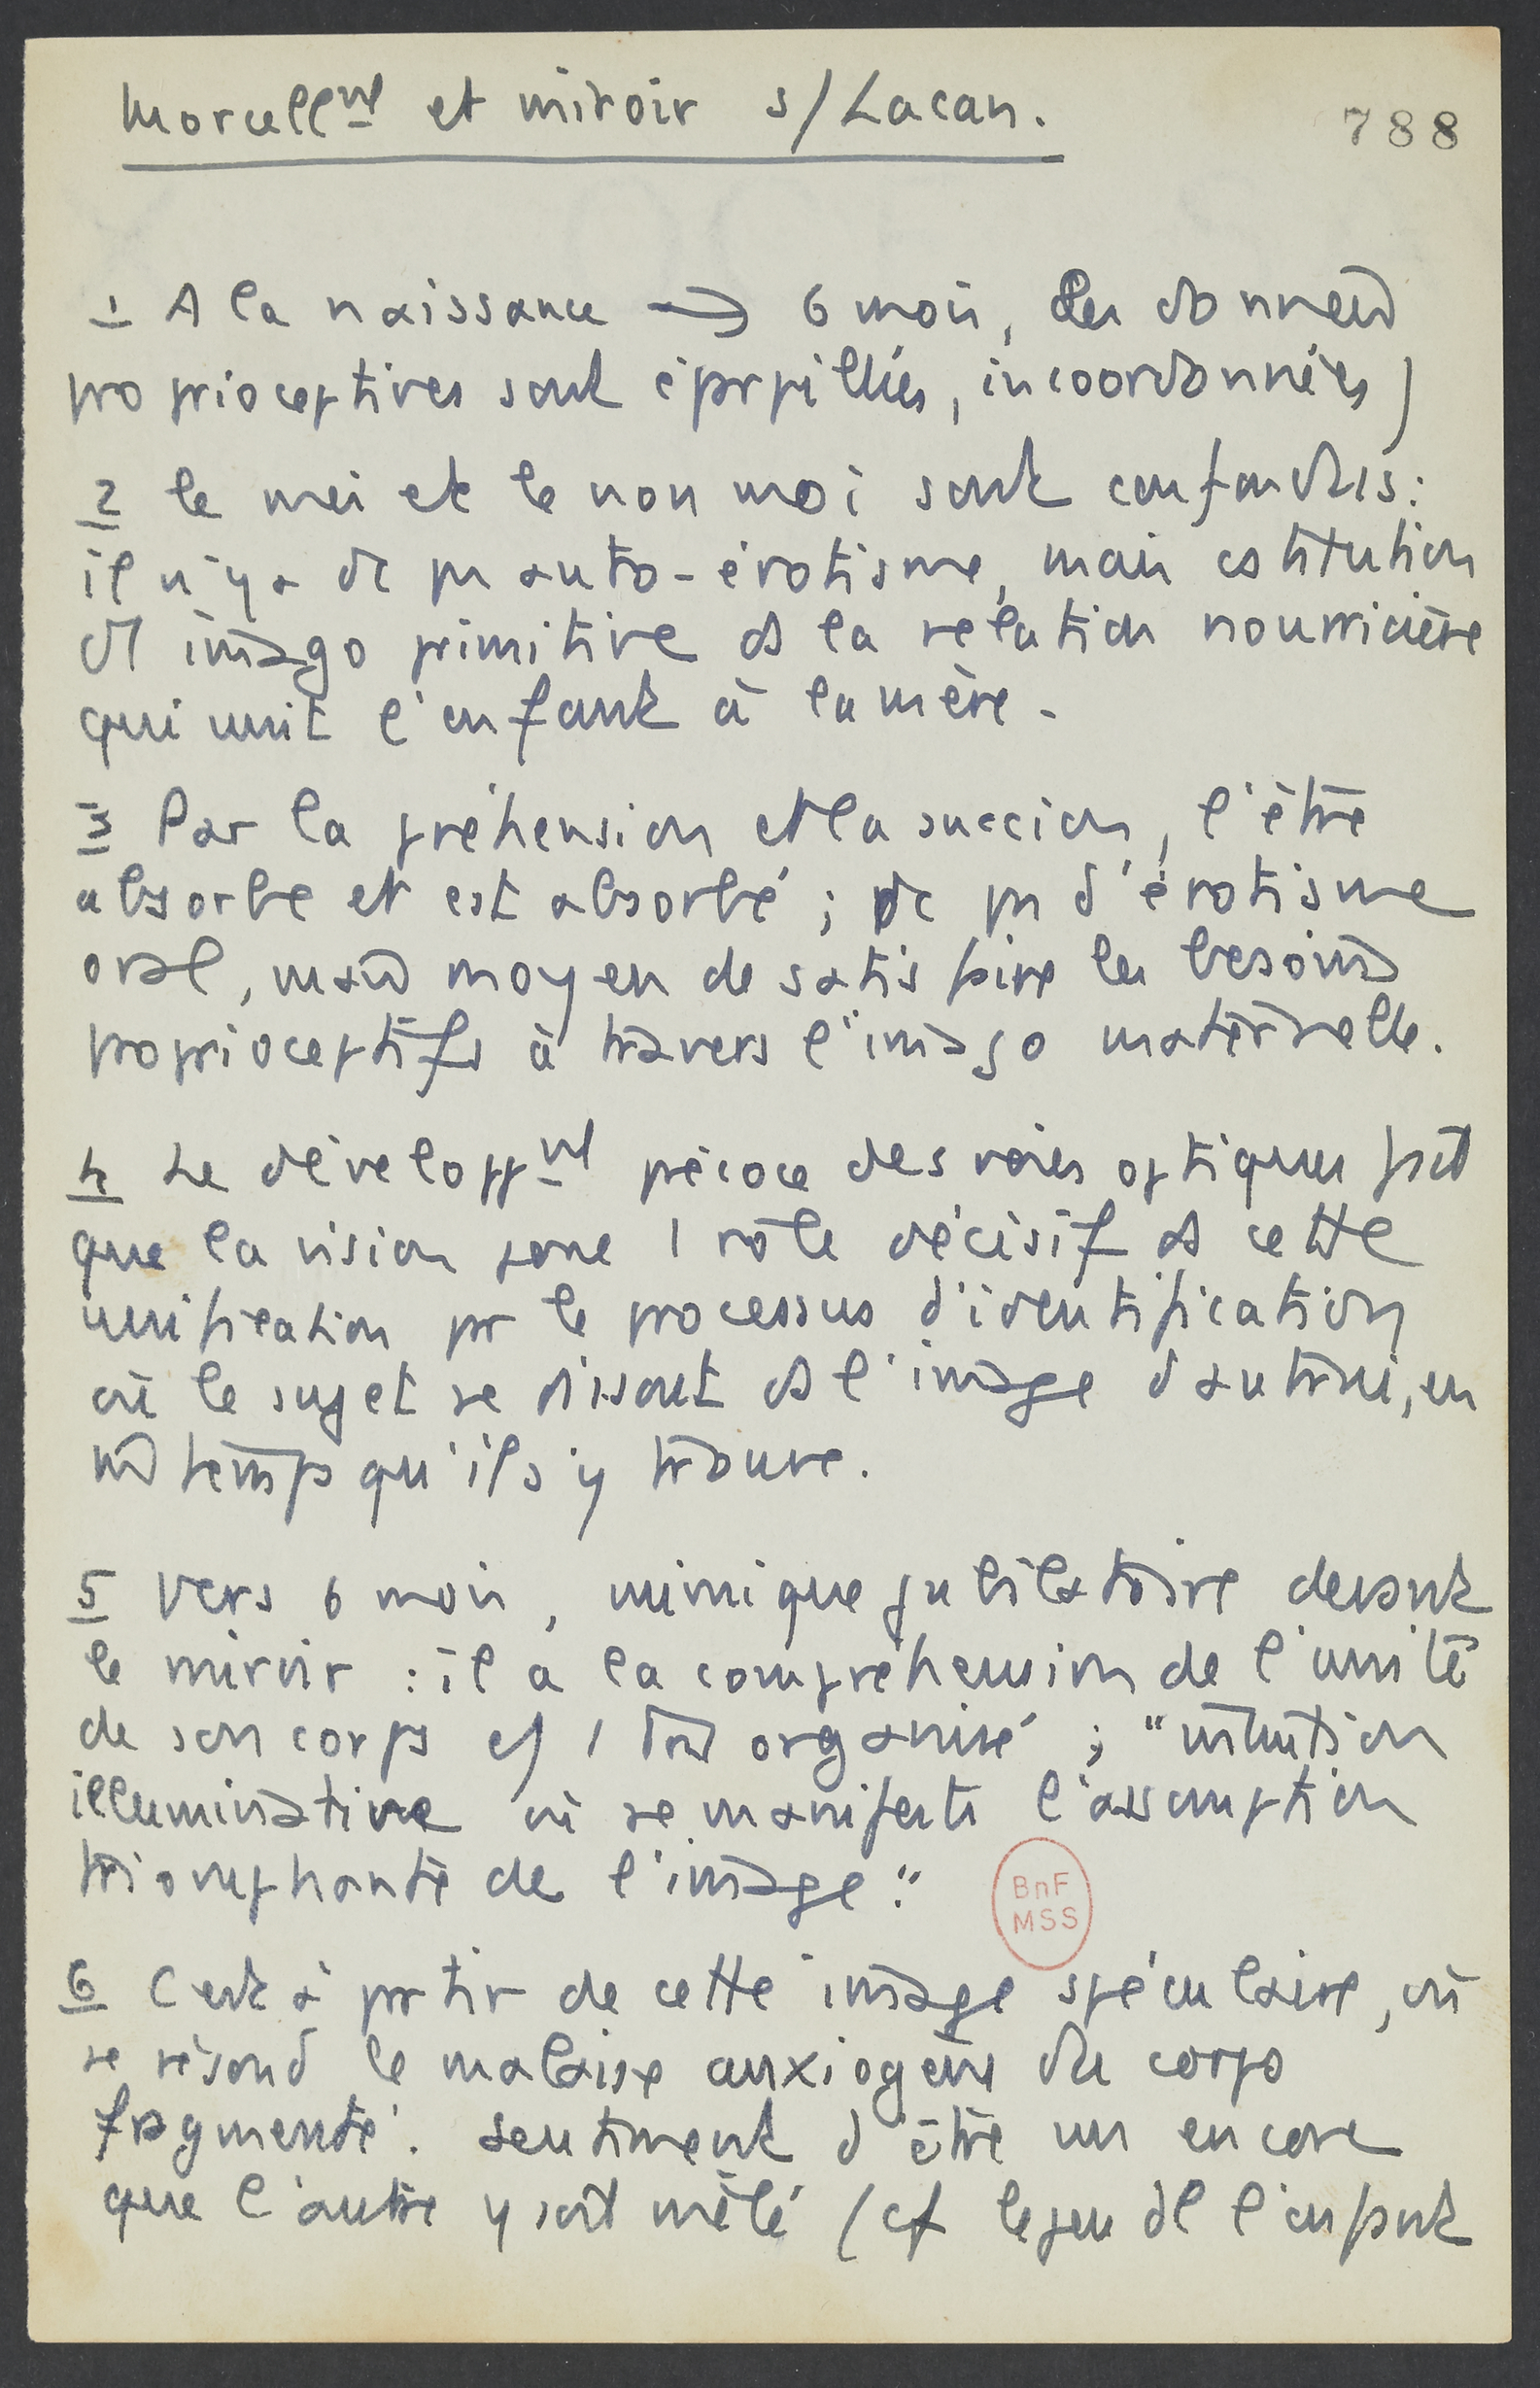 Morcellnt et miroir s/Lacan.
788
1 A la naissance → 6 mois, les données
proprioceptives sont éprpillées, incoordonnées)
2 le moi et le non moi sont confondus :
il n'y a dc ps auto-érotisme, mais cstitution
dl imago primitive ds la relation nourricière
qui unit l'enfant à la mère.
3 Par la préhension et la succion, l'être
absorbe et est absorbé ; dc ps d'érotisme
oral, mais moyen de satisfaire les besoins
proprioceptifs à travers l'imago maternelle.
4 Le développnt précoce des voies optiques fait
que la vision joue 1 rôle décisif ds cette
unification pr le processus d'identification
où le sujet se dissout ds l'image d'autrui, en
m temps qu'il s'y trouve.
5 Vers 6 mois, mimique jubilatoire devant
le miroir : il a la compréhension de l'unité
de son corps c/ 1 tout organisé ; "intuition
illuminative où se manifeste l'assomption
triomphante de l'image".
BnF
MSS
6 C'est à prtir de cette image spéculaire, où
se résoud le malaise anxiogène du corps
fragmenté. sentiment d'être un encore
que l'autre y soit mêlé (cf le jeu dl l'enfant